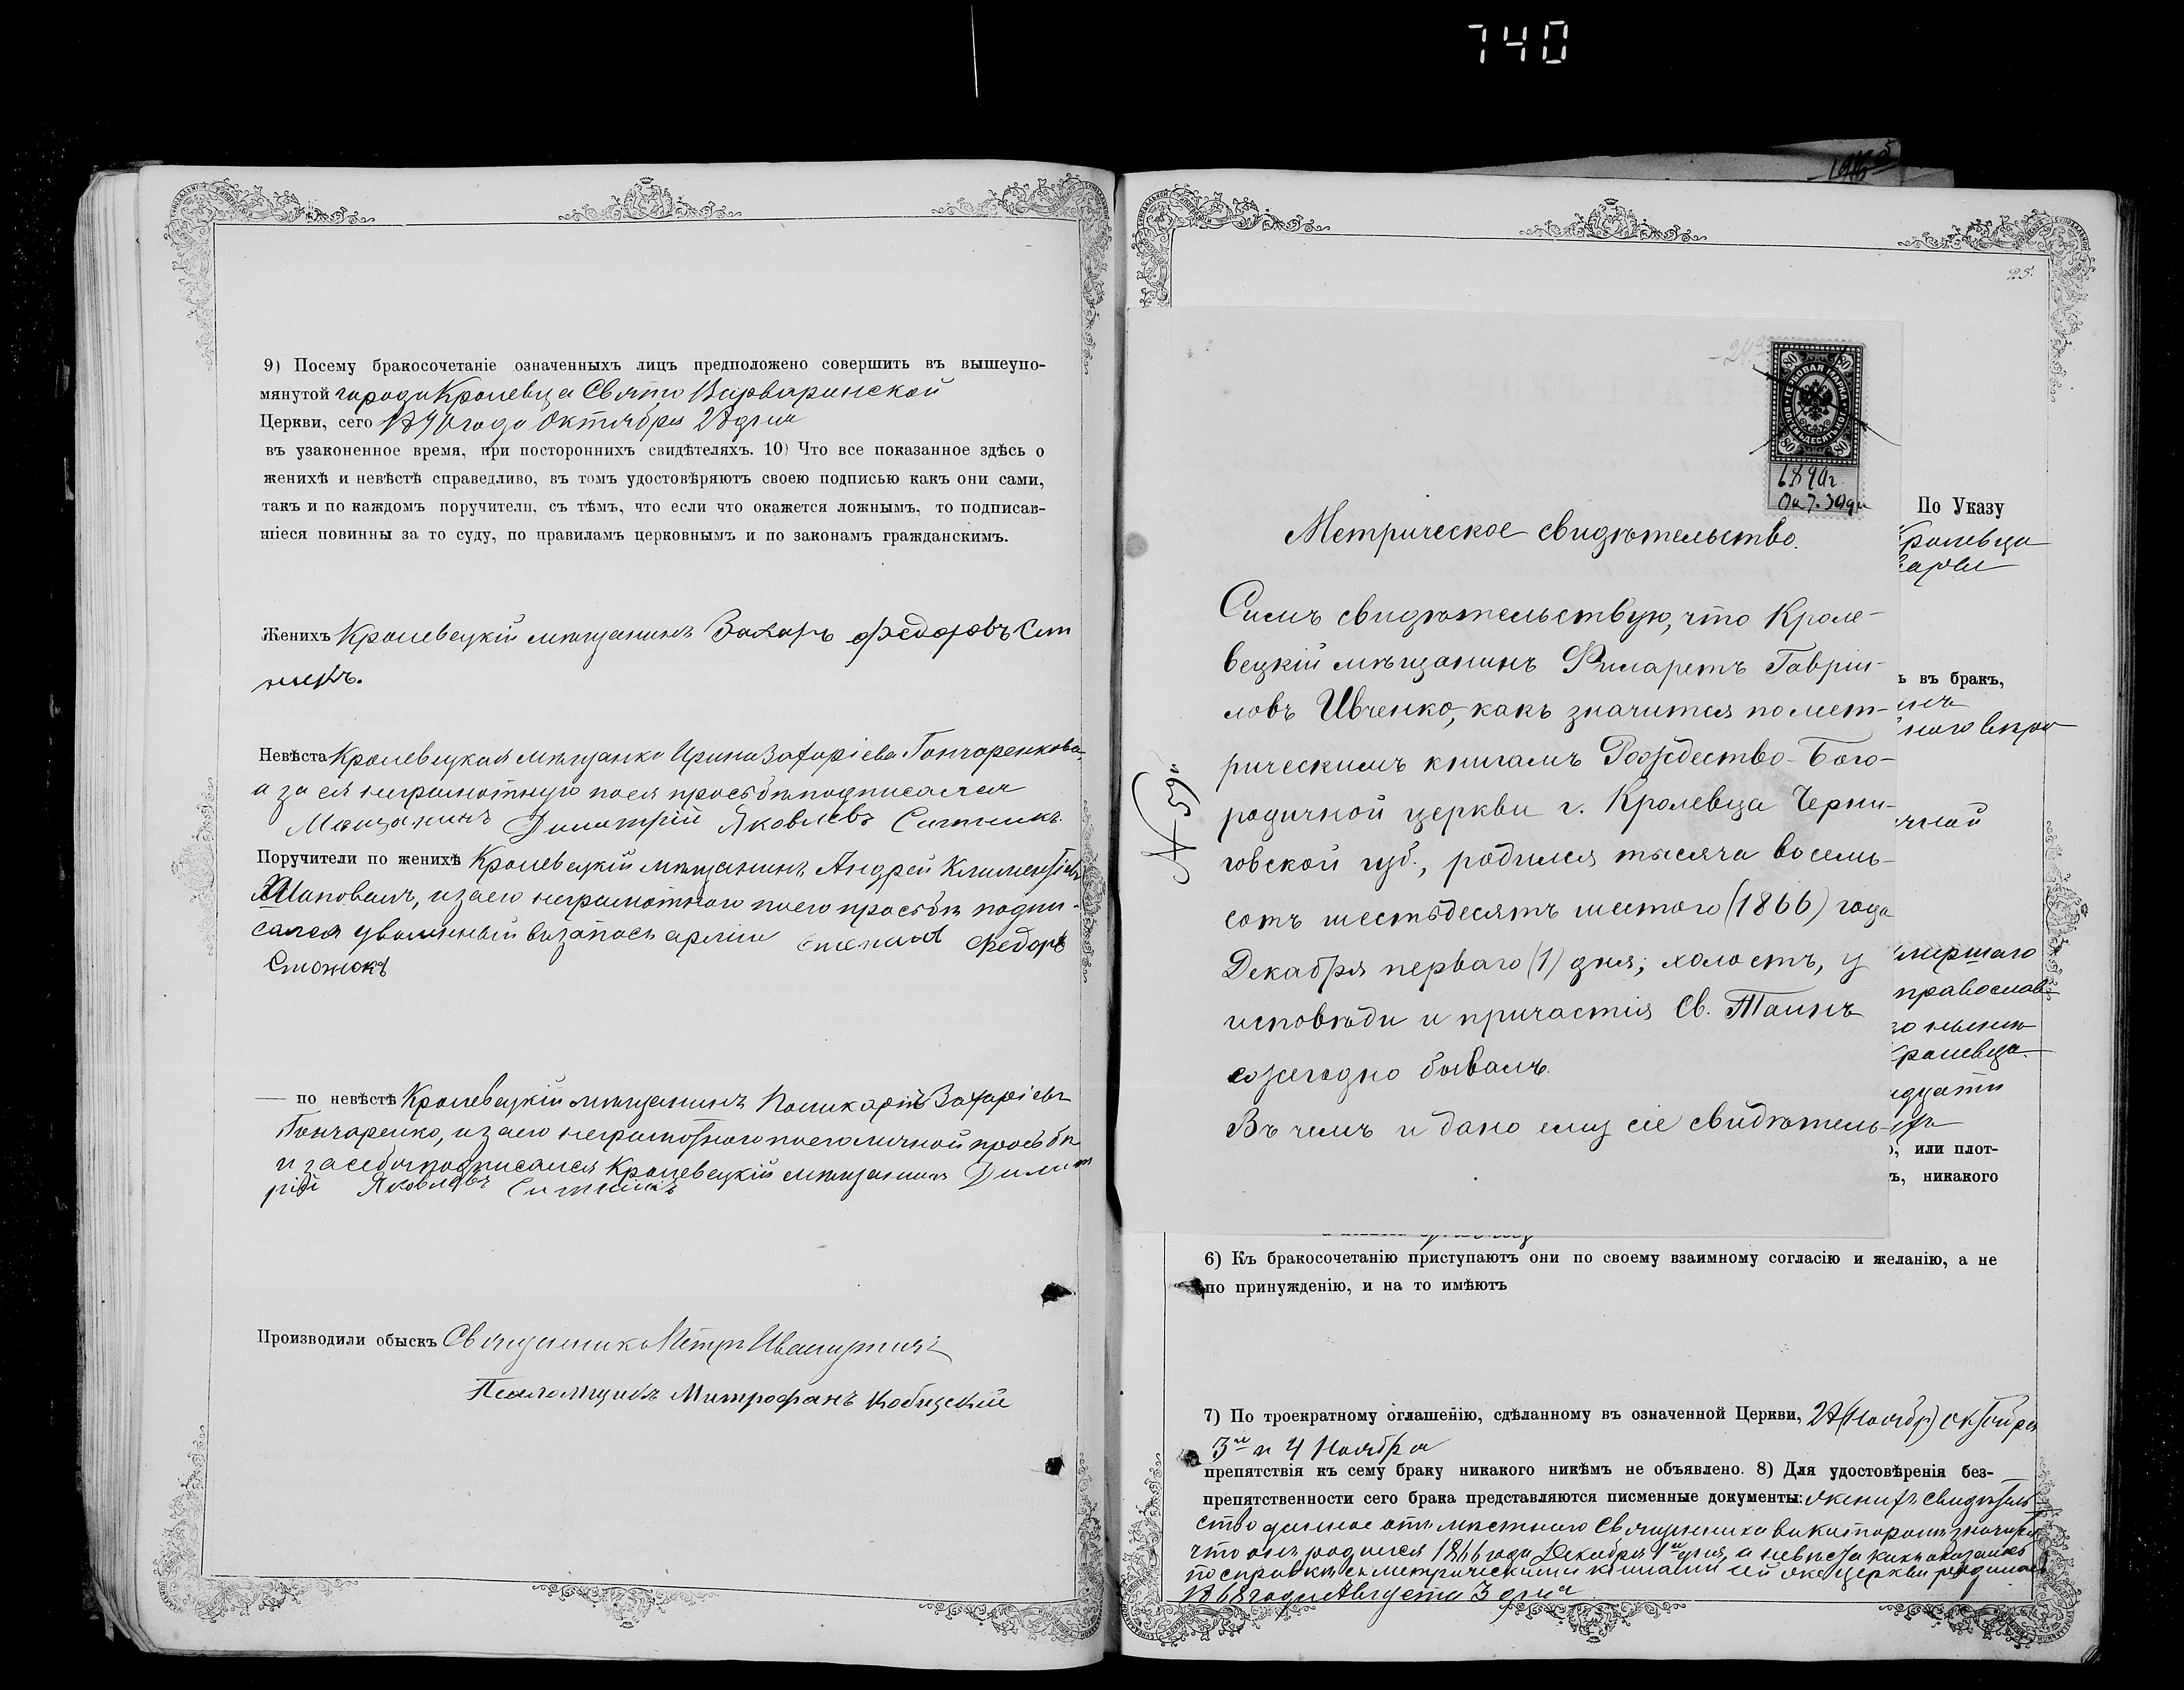 740
9) Посему бракосочетаніе означенныхъ лицъ предположено совершить въ вышеупо-
мянутой города Кролевца Свято Варваринской
Церкви, сего 1890 года Октября 28 дня
въ узаконенное время, при постороннихъ свидѣтеляхъ. 10) Что все показанное здѣсь о
женихѣ и невѣстѣ справедливо, въ томъ удостовѣряютъ своею подписью какъ они сами,
такъ и по каждомъ поручители, съ тѣмъ, что если что окажется ложнымъ, то подписав-
шіеся повинны за то суду, по правиламъ церковнымъ и по законамъ гражданскимъ.
Женихъ Кролевецкій мѣщанинъ Захаръ Федоровъ Сит
никъ.
Невѣста Кролевецкая мѣщанка Ирина Захаріева Гончаренкова,
а за ея неграмотную по ея просьбѣ подписался
Мѣщанинъ Димитрій Яковлевъ Ситникъ.
Поручители по женихѣ Кролевецкій мѣщанинъ Андрей Климентіевъ
Шаповалъ, и за его неграмотнаго по его просьбѣ подпи-
сался уволенный въ запасъ арміи Федоръ
— по невѣстѣ Кролевецкій мѣщанинъ Поликарпъ Захаріевъ
Гончаренко, и за его неграмотнаго по его личной просьбѣ
и за себя подписался Кролевецкій мѣщанинъ Димит
рій Яковлевъ Ситникъ
Производили обыскъ Священникъ Петръ
Псаломщикъ Митрофанъ Кобыцскій
25.
ГЕРБОВАЯ МАРКА
ВОСЕМЬДЕСЯТЪ КОП.
80 80 80 80
1890 г.
Окт. 30 дня
Метрическое свидѣтельство.
Симъ свидѣтельствую, что Кроле-
вецкій мѣщанинъ Филаретъ Гаврiи-
ловъ Ивченко, какъ значится по мет-
рическимъ книгамъ Рождество-Бого-
родичной церкви г. Кролевца Черни-
говской губ., родился тысяча восемь-
сотъ шестьдесятъ шестого (1866) года
Декабря перваго (1) дня; холостъ, у
исповѣди и причастія Св. Таинъ
ежегодно бывалъ.
Въ чемъ и дано ему сіе свидѣтель-
№ 59
По Указу
Кролевца
ь въ бракъ,
чной
умершаго
православ
Кролевца
дцати
о, или плот-
ъ, никакого
6) Къ бракосочетанію приступаютъ они по своему взаимному согласію и желанію, а не
по принужденію, и на то имѣютъ
7) По троекратному оглашенію, сдѣланному въ означенной Церкви, 28 (Ноябр) октября
3го и 4 Ноября
препятствія къ сему браку никакого никѣмъ не объявлено. 8) Для удостовѣренія без-
препятственности сего брака представляются писменные документы: жених свидѣтель
ство данное отъ мѣстнаго Священника въ которомъ значится
что онъ родился 1866 года Декабря 1го дня, а невѣста какъ оказалось
по справкѣ съ метрическими книгами сей же церкви родилась
1868 года Августа 3 дня